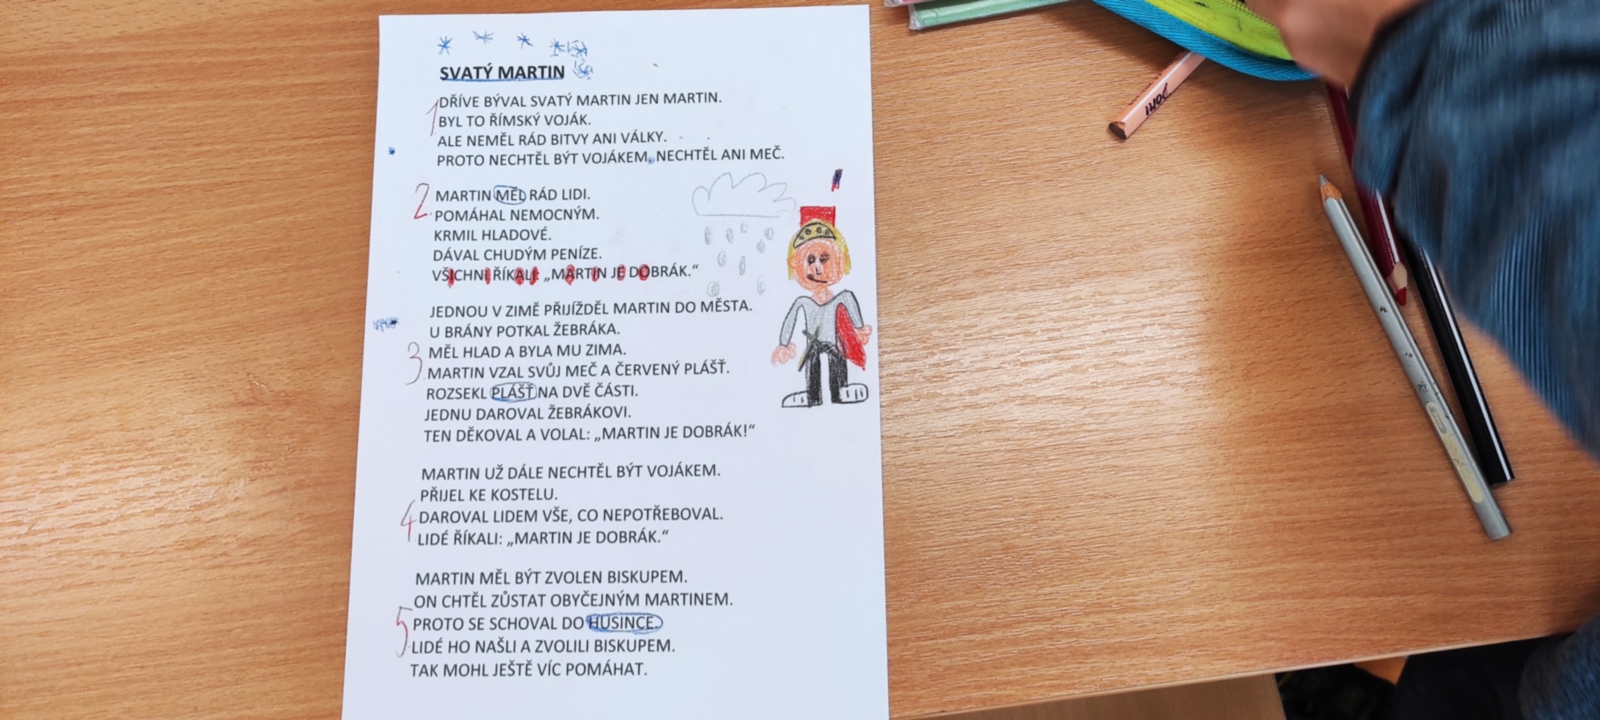 SVATÝ MARTIN
1 DŘÍVE BÝVAL SVATÝ MARTIN JEN MARTIN.
BYL TO ŘÍMSKÝ VOJÁK.
ALE NEMĚL RÁD BITVY ANI VÁLKY.
PROTO NECHTĚL BÝT VOJÁKEM, NECHTĚL ANI MEČ.
2 MARTIN MĚL RÁD LIDI.
POMÁHAL NEMOCNÝM.
KRMIL HLADOVÉ.
DÁVAL CHUDÝM PENÍZE.
VŠICHNI ŘÍKALI: „MARTIN JE DOBRÁK.“
JEDNOU V ZIMĚ PŘIJÍŽDĚL MARTIN DO MĚSTA.
U BRÁNY POTKAL ŽEBRÁKA.
3 MĚL HLAD A BYLA MU ZIMA.
MARTIN VZAL SVŮJ MEČ A ČERVENÝ PLÁŠŤ.
ROZSEKL PLÁŠŤ NA DVĚ ČÁSTI.
JEDNU DAROVAL ŽEBRÁKOVI.
TEN DĚKOVAL A VOLAL: „MARTIN JE DOBRÁK!“
MARTIN UŽ DÁLE NECHTĚL BÝT VOJÁKEM.
PŘIJEL KE KOSTELU.
4 DAROVAL LIDEM VŠE, CO NEPOTŘEBOVAL.
LIDÉ ŘÍKALI: „MARTIN JE DOBRÁK.“
MARTIN MĚL BÝT ZVOLEN BISKUPEM.
ON CHTĚL ZŮSTAT OBYČEJNÝM MARTINEM.
5 PROTO SE SCHOVAL DO HUSINCE.
LIDÉ HO NAŠLI A ZVOLILI BISKUPEM.
TAK MOHL JEŠTĚ VÍC POMÁHAT.